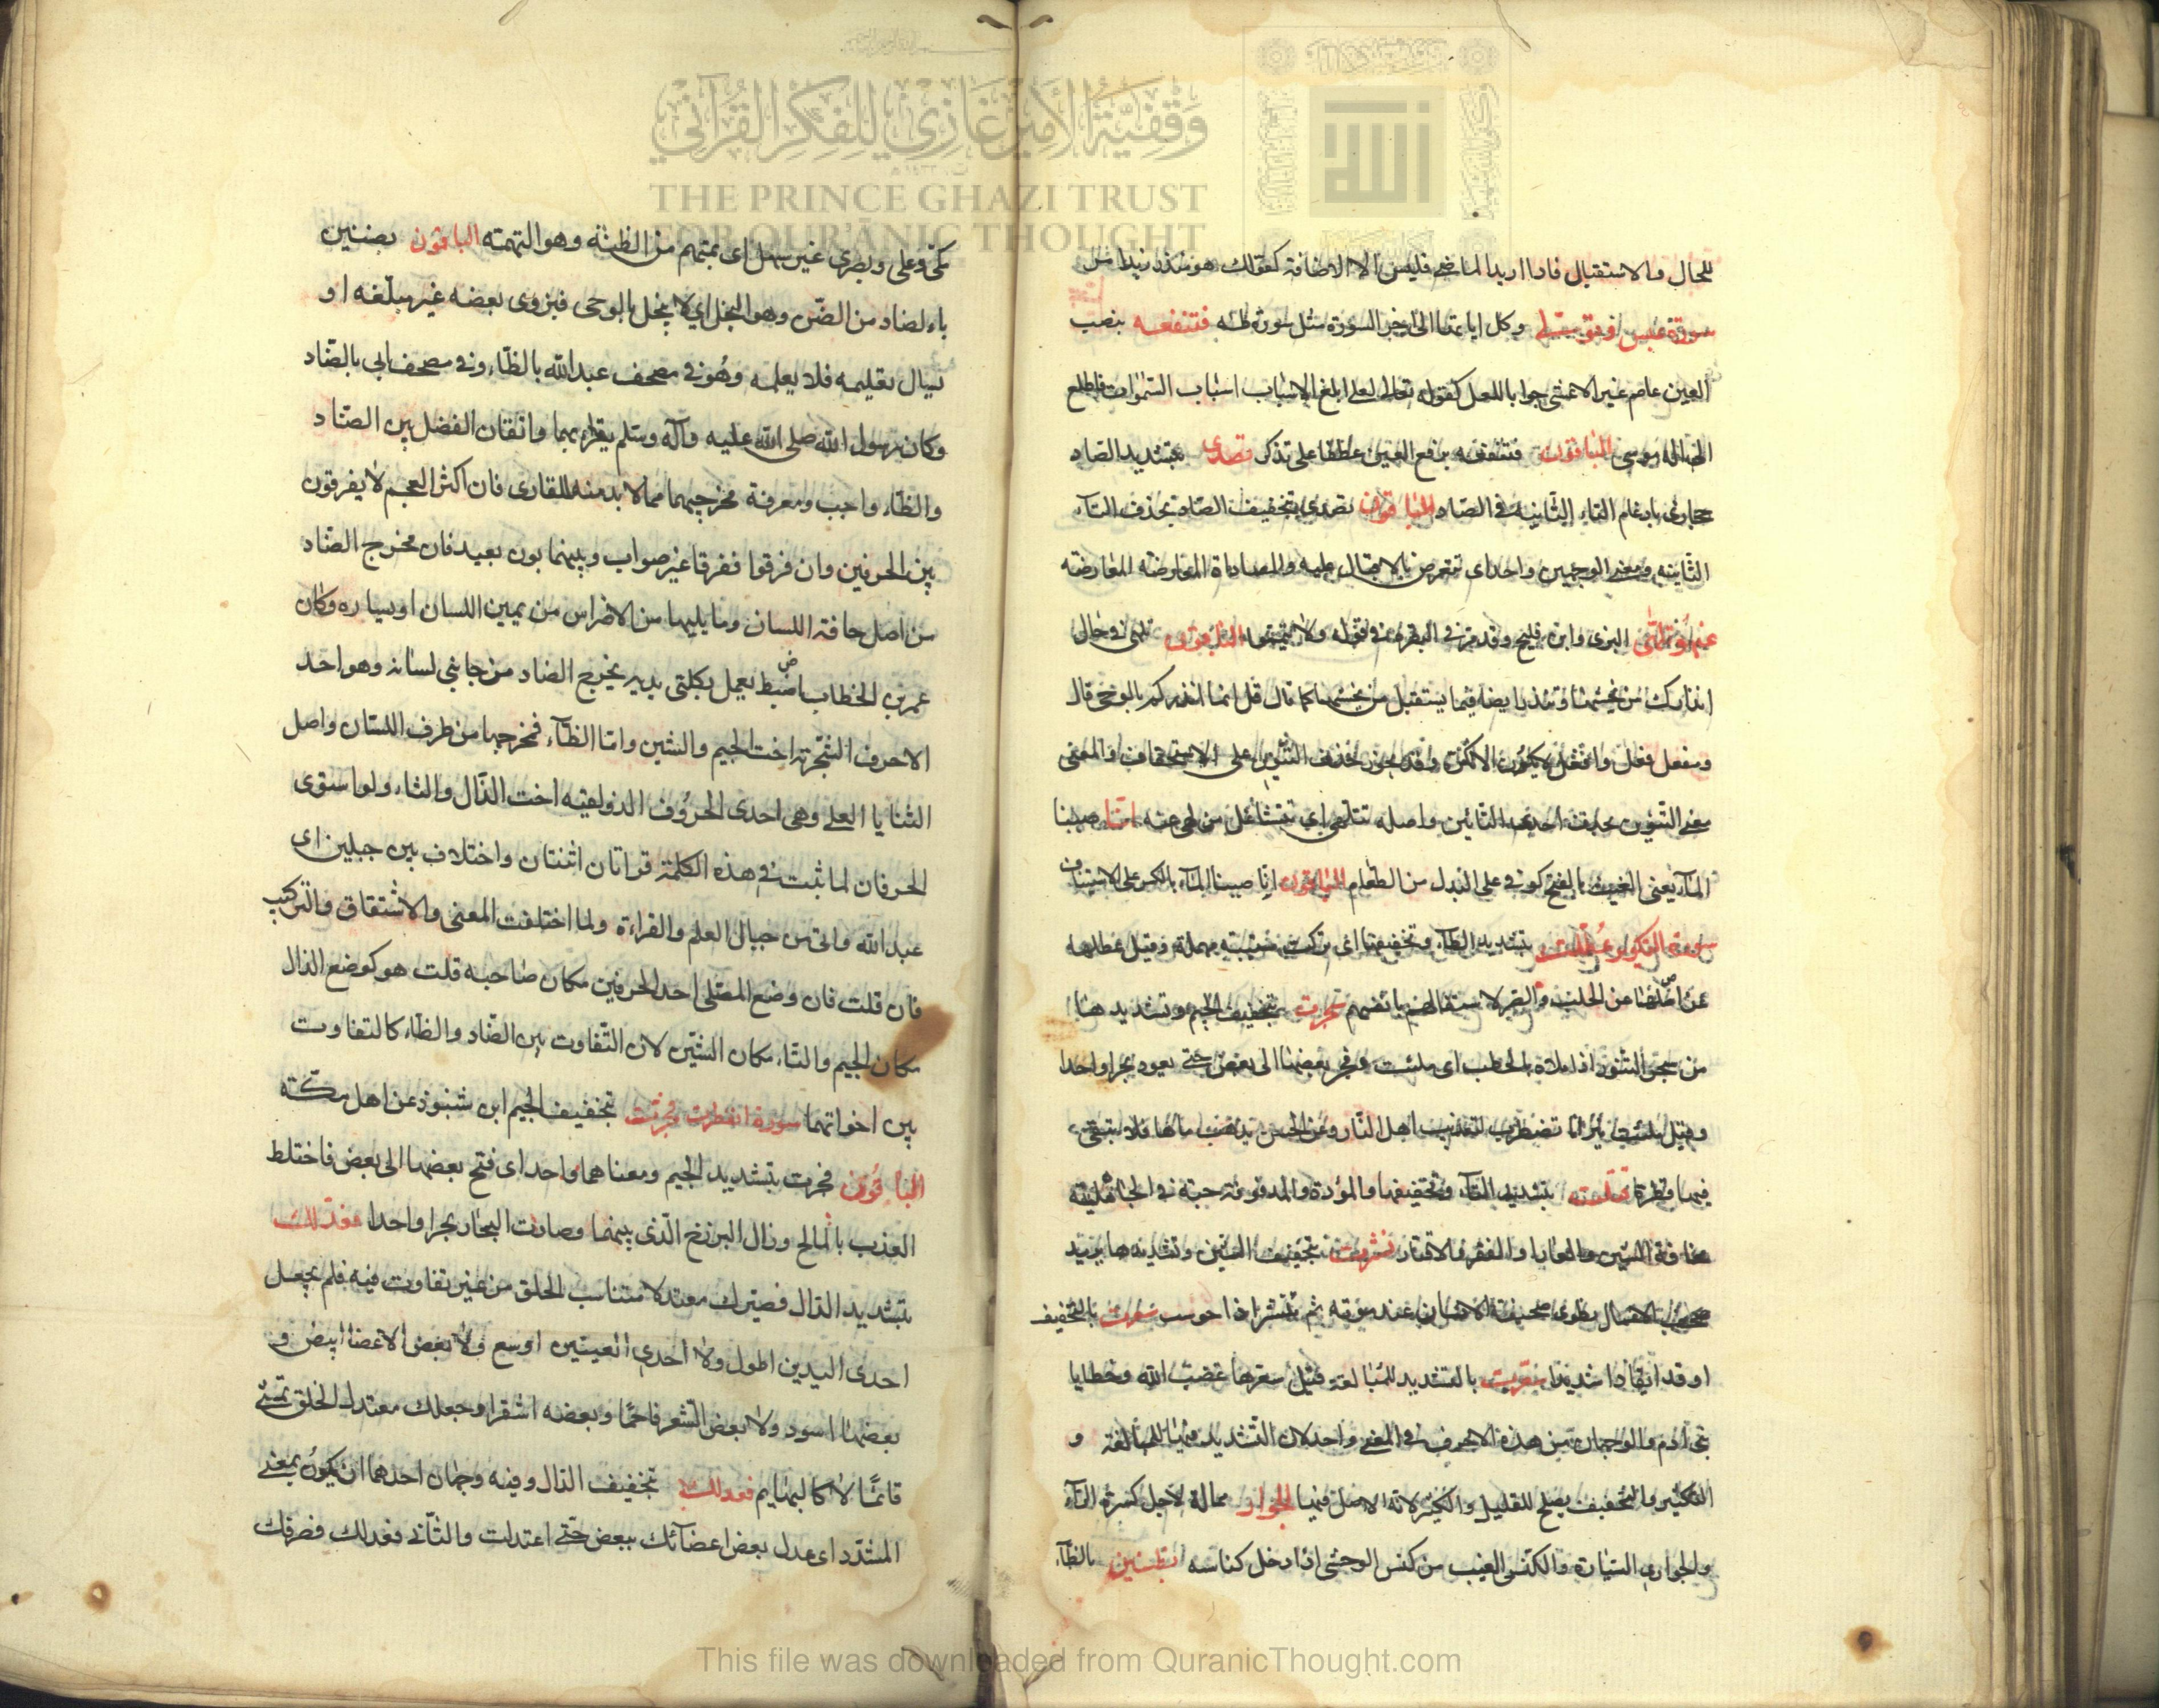 للحال والاستقبال فاذا اريد الماضي فليس الا الاضافة كقولك هو منذر زيد امس
سورة عبس او تتوفى وكل اياتها الى اخر السورة مثل سورة طه فتنفعه بنصب
العين عاصم غير الاعشى جوابا للعل كقوله تعالى لعلى ابلغ الاسباب اسباب السموات فاطلع
الى اله موسى الباقون فتنفعه برفع العين عطفا على تذكر تصدى بتشديد الصاد
حجازى بادغام التاء الثانية في الصاد الباقون تصدى بتخفيف الصاد بحذف التاء
الثانية ومعنى الوجهين واحد اى تتعرض بالاقبال عليه والمصاداة المعارضة المعارضة
عنه تلهى البزى وابن فليح وقد مر في البقره في قوله ولا تيمموا الباقون تلهى في حال
انذارك من يخشيها وتنذر ايضا فيما يستقبل من يخشيها كما قال قل انما انذركم بالوحى قال
معنى التنوين بحذف احدى التائين واصله تتلهى اى تتشاغل من لهى عنه انا صببنا
الماء يعنى الغيث بالفتح كوفي على البدل من الطعام الباقون انا صببنا الماء بالكسر على الاستيناف
سورة التكوير عطلت بتشديد الطاء وتخفيفها اى تركت مسيبة مهملة وقيل عطلها
عن الحلب والصر لاستقالهم بانفسهم سجرت بتخفيف الجيم وتشديدها
من سجر التنور اذا ملاه بالحطب اى ملئت وفجر بعضها الى بعض حتى يعود بحرا واحدا
وقيل ملئت نيرانا تضطرب لتعذيب اهل النار وعن الحسن يذهب ماؤها فلا تبقى
فيها قطرة قتلت بتشديد التاء وتخفيفها والموؤدة والمدفونة حية في الجاهلية
نشرت بتخفيف الشين وتشديدها يريد
صحف الاعمال تطوى صحيفة الانسان عند موته ثم تنشر اذا حوسب سعرت بالتخفيف
اوقد ايقادا شديدا سعرت بالتشديد للمبالغة قيل سعرها غضب الله وخطايا
بنى ادم والوجهان من هذه الاحرف في المعنى واحد لان التشديد فيها للمبالغة و
التكثير والتخفيف يصلح للقليل والكثير لانه الاصل فيها الجوار ممالة لاجل كسرة الراء
والجوارى السيارة والكنس الغيب من كنس الوحشى اذا دخل كناسه بظنين بالظاء
مكى وعلى وبصرى غير سهل اى بمتهم من الظنة وهو التهمة الباقون بضنين
بالضاد من الضن وهو البخل اى لا يبخل بالوحى فيزوى بعضه غير مبلغه او
يسال تعليمه فلا يعلمه وهو في مصحف عبد الله بالظاء وفي مصحف ابى بالضاد
وكان رسول الله صلى الله عليه وآله وسلم يقراء بهما واتقان الفضل بين الضاد
والظاء واجب ومعرفة مخرجيهما مما لا بد منه للقارى فان اكثر العجم لا يفرقون
بين الحرفين وان فرقوا ففرقا غير صواب وبينهما بون بعيد فان مخرج الضاد
من اصل حافة اللسان وما يليها من الاضراس من يمين اللسان او يساره وكان
عمر بن الخطاب اضبط يعمل بكلتى يديه يخرج الضاد من جانبى لسانه وهو احد
الاحرف الشجرية اخت الجيم والشين واما الظاء فمخرجها من طرف اللسان واصل
الثنايا العلى وهى احدى الحروف الذولقيه اخت الذال والثاء ولو استوى
الحرفان لما ثبت في هذه الكلمة قراتان اثنتان واختلاف بين جبلين اى
عبد الله وابى من جبال العلم والقراءة ولما اختلفت المعنى والاشتقاق والتركيب
فان قلت فان وضع المصلى احد الحرفين مكان صاحبه قلت هو كوضع الذال
مكان الجيم والثاء مكان الشين لان التفاوت بين الضاد والظاء كالتفاوت
بين اخواتهما سورة انفطرت فجرت بتخفيف الجيم ابن شنبوذ عن اهل مكة
الباقون فجرت بتشديد الجيم ومعناهما واحد اى فتح بعضها الى بعض فاختلط
العذب بالمالح وزال البرزخ الذى بينهما وصارت البحار بحرا واحدا فعدلك
بتشديد الدال فصيرك معتدلا متناسب الخلق من غير تفاوت فيه فلم يجعل
احدى اليدين اطول ولا احدى العينين اوسع ولا بعض الاعضا ابيض و
بعضها اسود ولا بعض الشعر فاحما وبعضه اشقر او جعلك معتدل الخلق تمشى
قائما لا كالبهايم فعدلك بتخفيف الدال وفيه وجهان احدهما ان يكون بمعنى
المشدد اى عدل بعض اعضائك ببعض حتى اعتدلت والثانى فعدلك فصرفك
وقفية الأمير غازي للفكر القرآني
THE PRINCE GHAZI TRUST
FOR QUR'ĀNIC THOUGHT
This file was downloaded from QuranicThought.com